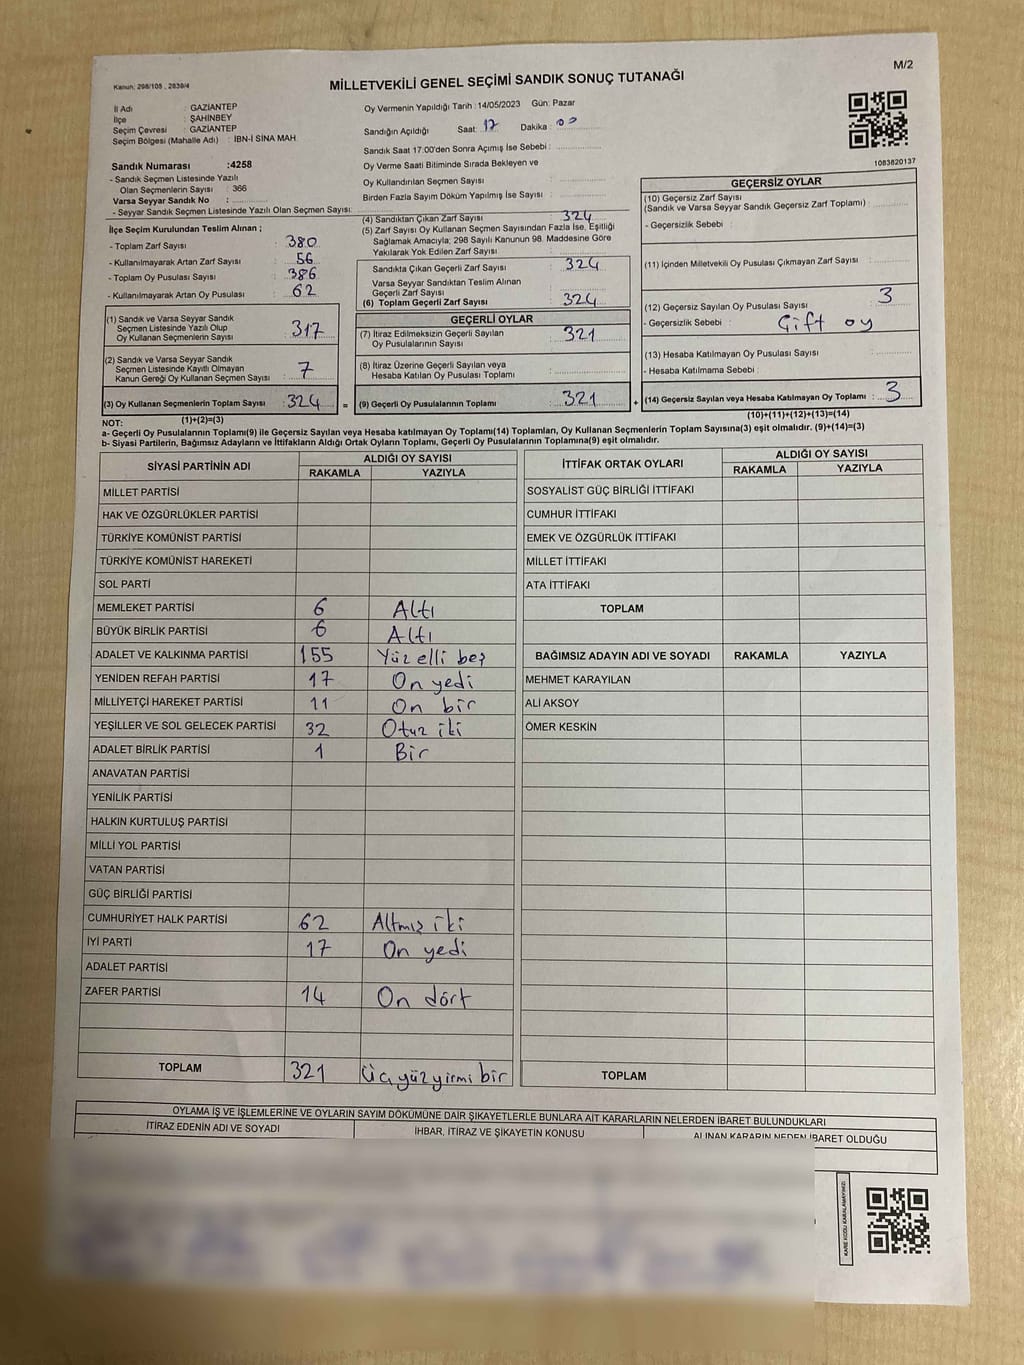 M/2
Kanun: 298/105 , 2839/4
MİLLETVEKİLİ GENEL SEÇİMİ SANDIK SONUÇ TUTANAĞI
İl Adı : GAZİANTEP
İlçe : ŞAHİNBEY
Seçim Çevresi : GAZİANTEP
Seçim Bölgesi (Mahalle Adı) : İBN-İ SİNA MAH.
Sandık Numarası :4258
- Sandık Seçmen Listesinde Yazılı
Olan Seçmenlerin Sayısı : 366
Varsa Seyyar Sandık No :
- Seyyar Sandık Seçmen Listesinde Yazılı Olan Seçmen Sayısı:
Oy Vermenin Yapıldığı Tarih : 14/05/2023 Gün: Pazar
Sandığın Açıldığı Saat: 17 Dakika : 00
Sandık Saat 17:00'den Sonra Açımış İse Sebebi :
Oy Verme Saati Bitiminde Sırada Bekleyen ve
Oy Kullandırılan Seçmen Sayısı :
Birden Fazla Sayım Döküm Yapılmış İse Sayısı :
1083820137
İlçe Seçim Kurulundan Teslim Alınan ;
- Toplam Zarf Sayısı : 380
- Kullanılmayarak Artan Zarf Sayısı : 56
- Toplam Oy Pusulası Sayısı : 386
- Kullanılmayarak Artan Oy Pusulası : 62
(1) Sandık ve Varsa Seyyar Sandık
Seçmen Listesinde Yazılı Olup
Oy Kullanan Seçmenlerin Sayısı : 317
(2) Sandık ve Varsa Seyyar Sandık
Seçmen Listesinde Kayıtlı Olmayan
Kanun Gereği Oy Kullanan Seçmen Sayısı : 7
(3) Oy Kullanan Seçmenlerin Toplam Sayısı : 324 =
(1)+(2)=(3)
(4) Sandıktan Çıkan Zarf Sayısı : 324
(5) Zarf Sayısı Oy Kullanan Seçmen Sayısından Fazla İse, Eşitliği
Sağlamak Amacıyla; 298 Sayılı Kanunun 98. Maddesine Göre
Yakılarak Yok Edilen Zarf Sayısı :
Sandıkta Çıkan Geçerli Zarf Sayısı : 324
Varsa Seyyar Sandıktan Teslim Alınan
Geçerli Zarf Sayısı :
(6) Toplam Geçerli Zarf Sayısı : 324
GEÇERLİ OYLAR
(7) İtiraz Edilmeksizin Geçerli Sayılan
Oy Pusulalarının Sayısı : 321
(8) İtiraz Üzerine Geçerli Sayılan veya
Hesaba Katılan Oy Pusulası Toplamı :
(9) Geçerli Oy Pusulalarının Toplamı : 321 +
GEÇERSİZ OYLAR
(10) Geçersiz Zarf Sayısı
(Sandık ve Varsa Seyyar Sandık Geçersiz Zarf Toplamı) :
- Geçersizlik Sebebi :
(11) İçinden Milletvekili Oy Pusulası Çıkmayan Zarf Sayısı :
(12) Geçersiz Sayılan Oy Pusulası Sayısı : 3
- Geçersizlik Sebebi : Çift oy
(13) Hesaba Katılmayan Oy Pusulası Sayısı :
- Hesaba Katılmama Sebebi :
(14) Geçersiz Sayılan veya Hesaba Katılmayan Oy Toplamı : 3
(10)+(11)+(12)+(13)=(14)
NOT:
a- Geçerli Oy Pusulalarının Toplamı(9) ile Geçersiz Sayılan veya Hesaba katılmayan Oy Toplamı(14) Toplamları, Oy Kullanan Seçmenlerin Toplam Sayısına(3) eşit olmalıdır. (9)+(14)=(3)
b- Siyasi Partilerin, Bağımsız Adayların ve İttifakların Aldığı Ortak Oyların Toplamı, Geçerli Oy Pusulalarının Toplamına(9) eşit olmalıdır.
SİYASİ PARTİNİN ADI ALDIĞI OY SAYISI
RAKAMLA YAZIYLA
MİLLET PARTİSİ
HAK VE ÖZGÜRLÜKLER PARTİSİ
TÜRKİYE KOMÜNİST PARTİSİ
TÜRKİYE KOMÜNİST HAREKETİ
SOL PARTİ
MEMLEKET PARTİSİ 6 Altı
BÜYÜK BİRLİK PARTİSİ 6 Altı
ADALET VE KALKINMA PARTİSİ 155 Yüz elli beş
YENİDEN REFAH PARTİSİ 17 On yedi
MİLLİYETÇİ HAREKET PARTİSİ 11 On bir
YEŞİLLER VE SOL GELECEK PARTİSİ 32 Otuz iki
ADALET BİRLİK PARTİSİ 1 Bir
ANAVATAN PARTİSİ
YENİLİK PARTİSİ
HALKIN KURTULUŞ PARTİSİ
MİLLİ YOL PARTİSİ
VATAN PARTİSİ
GÜÇ BİRLİĞİ PARTİSİ
CUMHURİYET HALK PARTİSİ 62 Altmış iki
İYİ PARTİ 17 On yedi
ADALET PARTİSİ
ZAFER PARTİSİ 14 On dört
TOPLAM 321 Üç yüz yirmi bir
İTTİFAK ORTAK OYLARI ALDIĞI OY SAYISI
RAKAMLA YAZIYLA
SOSYALİST GÜÇ BİRLİĞİ İTTİFAKI
CUMHUR İTTİFAKI
EMEK VE ÖZGÜRLÜK İTTİFAKI
MİLLET İTTİFAKI
ATA İTTİFAKI
TOPLAM
BAĞIMSIZ ADAYIN ADI VE SOYADI RAKAMLA YAZIYLA
MEHMET KARAYILAN
ALİ AKSOY
ÖMER KESKİN
TOPLAM
OYLAMA İŞ VE İŞLEMLERİNE VE OYLARIN SAYIM DÖKÜMÜNE DAİR ŞİKAYETLERLE BUNLARA AİT KARARLARIN NELERDEN İBARET BULUNDUKLARI
İTİRAZ EDENİN ADI VE SOYADI İHBAR, İTİRAZ VE ŞİKAYETİN KONUSU ALINAN KARARIN NEDEN İBARET OLDUĞU
KARE KODU KARALAMAYINIZ!